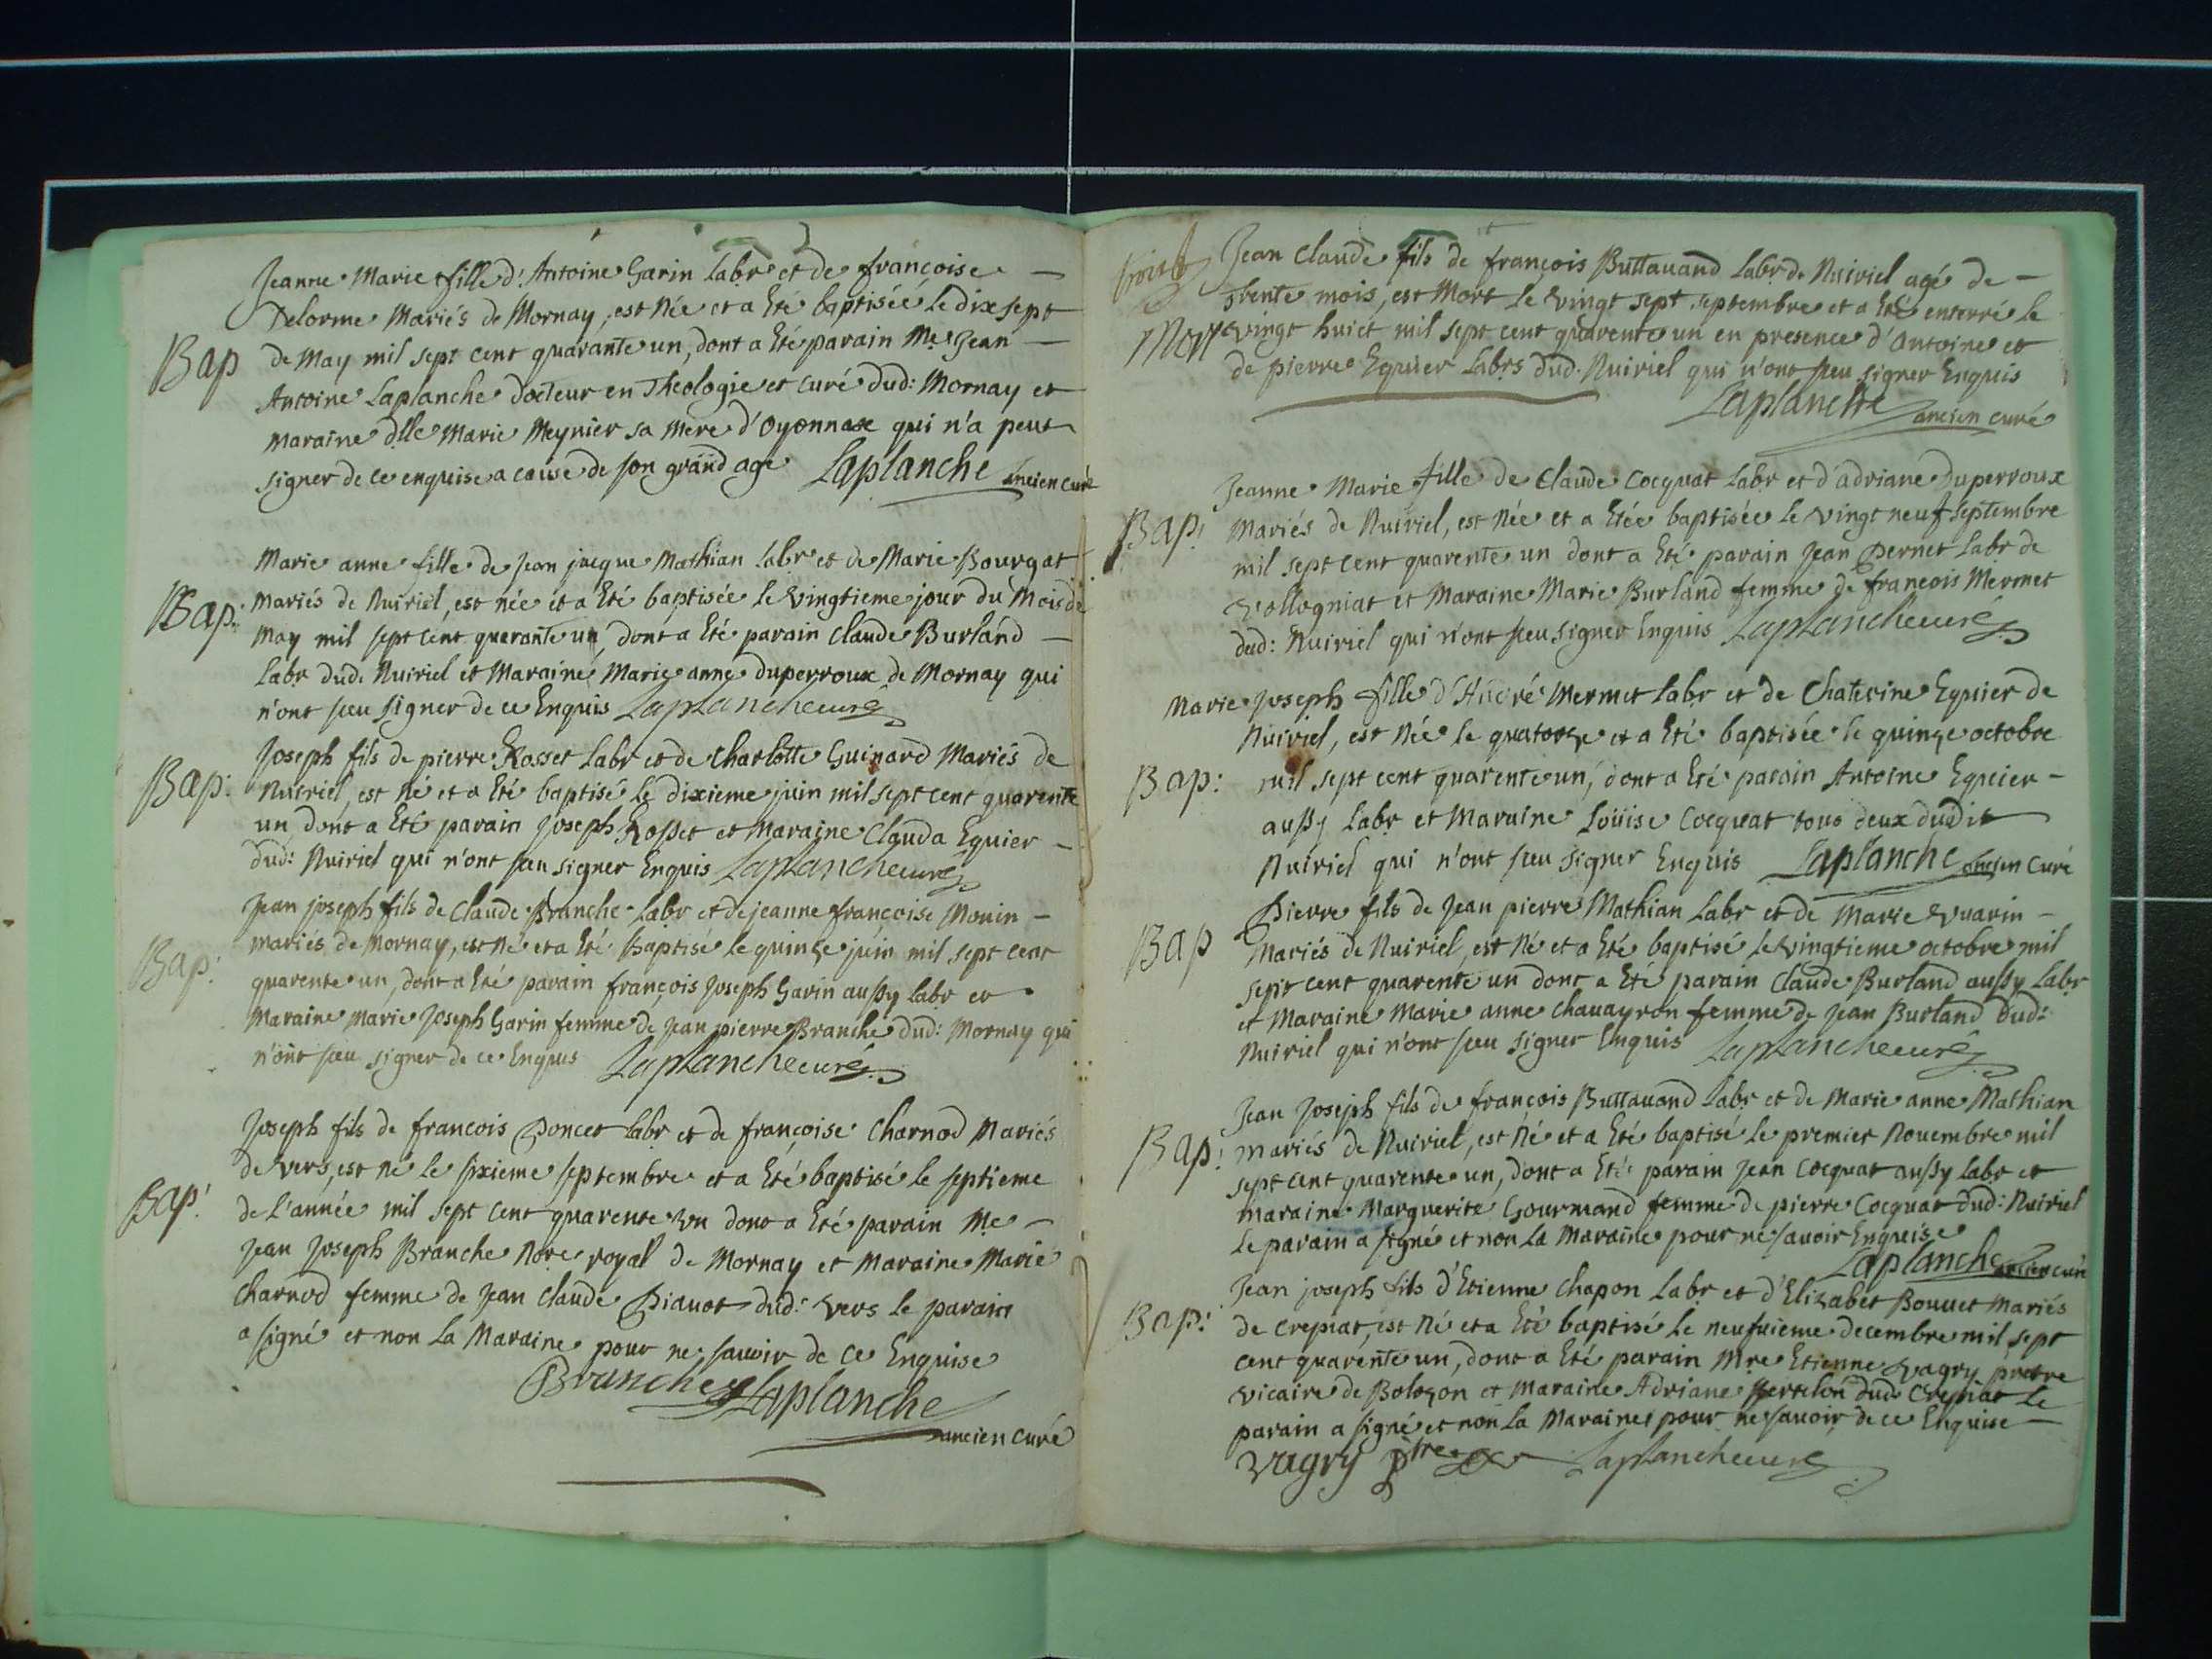 Jeanne Marie fille d'Antoine Garin Labr et de françoise
Delorme Mariés de Mornay, est Née et a Eté baptisée le dix sept
Bap de May mil sept cent quarante un, dont a Eté parain Me Jean
Antoine Laplanche docteur en Theologie et curé dud: Mornay et
maraine dlle Marie Meynier sa mere d'Oyonnax qui n'a peut
signer de ce enquise a cause de son grand age Laplanche ancien curé
Marie anne fille de Jean jacque Mathian Labr et de Marie Bourgat
Bap: Mariés de Nuiriel, est née et a Eté baptisée le vingtieme jour du Mois de
May mil sept cent quarante un, dont a Eté parain Claude Burland
Labr dud. Nuiriel et Maraine Marie anne duperroux de Mornay qui
n'ont sceu signer de ce Enquis Laplanche curé
Joseph fils de pierre Rosset Labr et de Charlotte Guinard Mariés de
Bap: Nuiriel, est Né et a Eté baptisé le dixieme juin mil sept cent quarente
un dont a Eté parain Joseph Rosset et Maraine Clauda Equier
dud: Nuiriel qui n'ont sceu signer Enquis Laplanche curé
Jean joseph fils de Claude Branche Labr et de jeanne françoise Monin
Bap: mariés de Mornay, est Né et a Eté baptisé le quinze juin mil sept cent
quarente un, dont a Eté parain françois Joseph Garin aussy labr et
Maraine Marie Joseph Garin femme de Jean pierre Branche dud: Mornay qui
n'ont sceu signer de ce Enquis Laplanche curé
Joseph fils de francois Poncet Labr et de françoise Charnod Mariés
de vers, est né le sixieme septembre et a Eté baptisé le septieme
Bap: de l'année mil sept cent quarente un dont a Eté parain Me
Jean Joseph Branche Nore royal de Mornay et Maraine Marie
Charnod femme de Jean Claude Pianot dud: vers le parain
a signé et non La Maraine pour ne savoir de ce Enquise
Branche Laplanche
ancien curé
Jean Claude fils de françois Buttauand Labr de Nuiriel agé de
trente mois, est Mort le vingt sept septembre et a Eté enterré le
Mort vingt huict mil sept cent quarente un en presence d'Antoine et
de pierre Equier Labrs dud. Nuiriel qui n'ont sceu signer Enquis
Laplanche ancien curé
Jeanne Marie fille de Claude Cocquat Labr et d'adriane Duperroux
Bap: Mariés de Nuiriel, est Née et a Etée baptisée le vingt neuf septembre
mil sept cent quarente un dont a Eté parain Jean Pernet Labr de
Vollogniat et Maraine Marie Burland femme de francois Mermet
dud: Nuiriel qui n'ont sceu signer Enquis Laplanche curé
Marie Joseph fille d'André Mermet Labr et de Chaterine Equier de
Nuiriel, est Née le quatorze et a Eté baptisée le quinze octobre
Bap: mil sept cent quarente un, dont a Eté parain Antoine Equier
aussy Labr et Maraine Loüise Cocquat tous deux dudit
Nuiriel qui n'ont sceu signer Enquis Laplanche ancien curé
Pierre fils de Jean pierre Mathian Labr et de Marie Vuarin
Bap Mariés de Nuiriel, est Né et a Eté baptisé le vingtieme octobre mil
sept cent quarente un dont a Eté parain Claude Burland aussy Labr
et Maraine Marie anne Chauayron femme de Jean Burland dud:
Nuiriel qui n'ont sceu signer Enquis Laplanche curé
Jean Joseph fils de françois Buttauand Labr et de Marie anne Mathian
Bap: mariés de Nuiriel, est Né et a Eté baptisé le premier Nouembre mil
sept cent quarente un, dont a Eté parain Jean Cocquat aussy Labr et
maraine Marguerite Gourmand femme de pierre Cocquat dud: Nuiriel
le parain a signé et non La Maraine pour ne savoir Enquise
Laplanche ancien curé
Jean joseph fils d'Etienne Chapon Labr et d'Elizabet Bouuet Mariés
Bap: de crepiat, est Né et a Eté baptisé le neufuieme decembre mil sept
cent quarente un, dont a Eté parain Mre Etienne Vagry pretre
Vicaire de Bolozon et Maraine Adriane Bertelon dud. Crepiat le
parain a signé et non La Maraine pour ne savoir de ce Enquise
Vagry ptre Laplanche curé